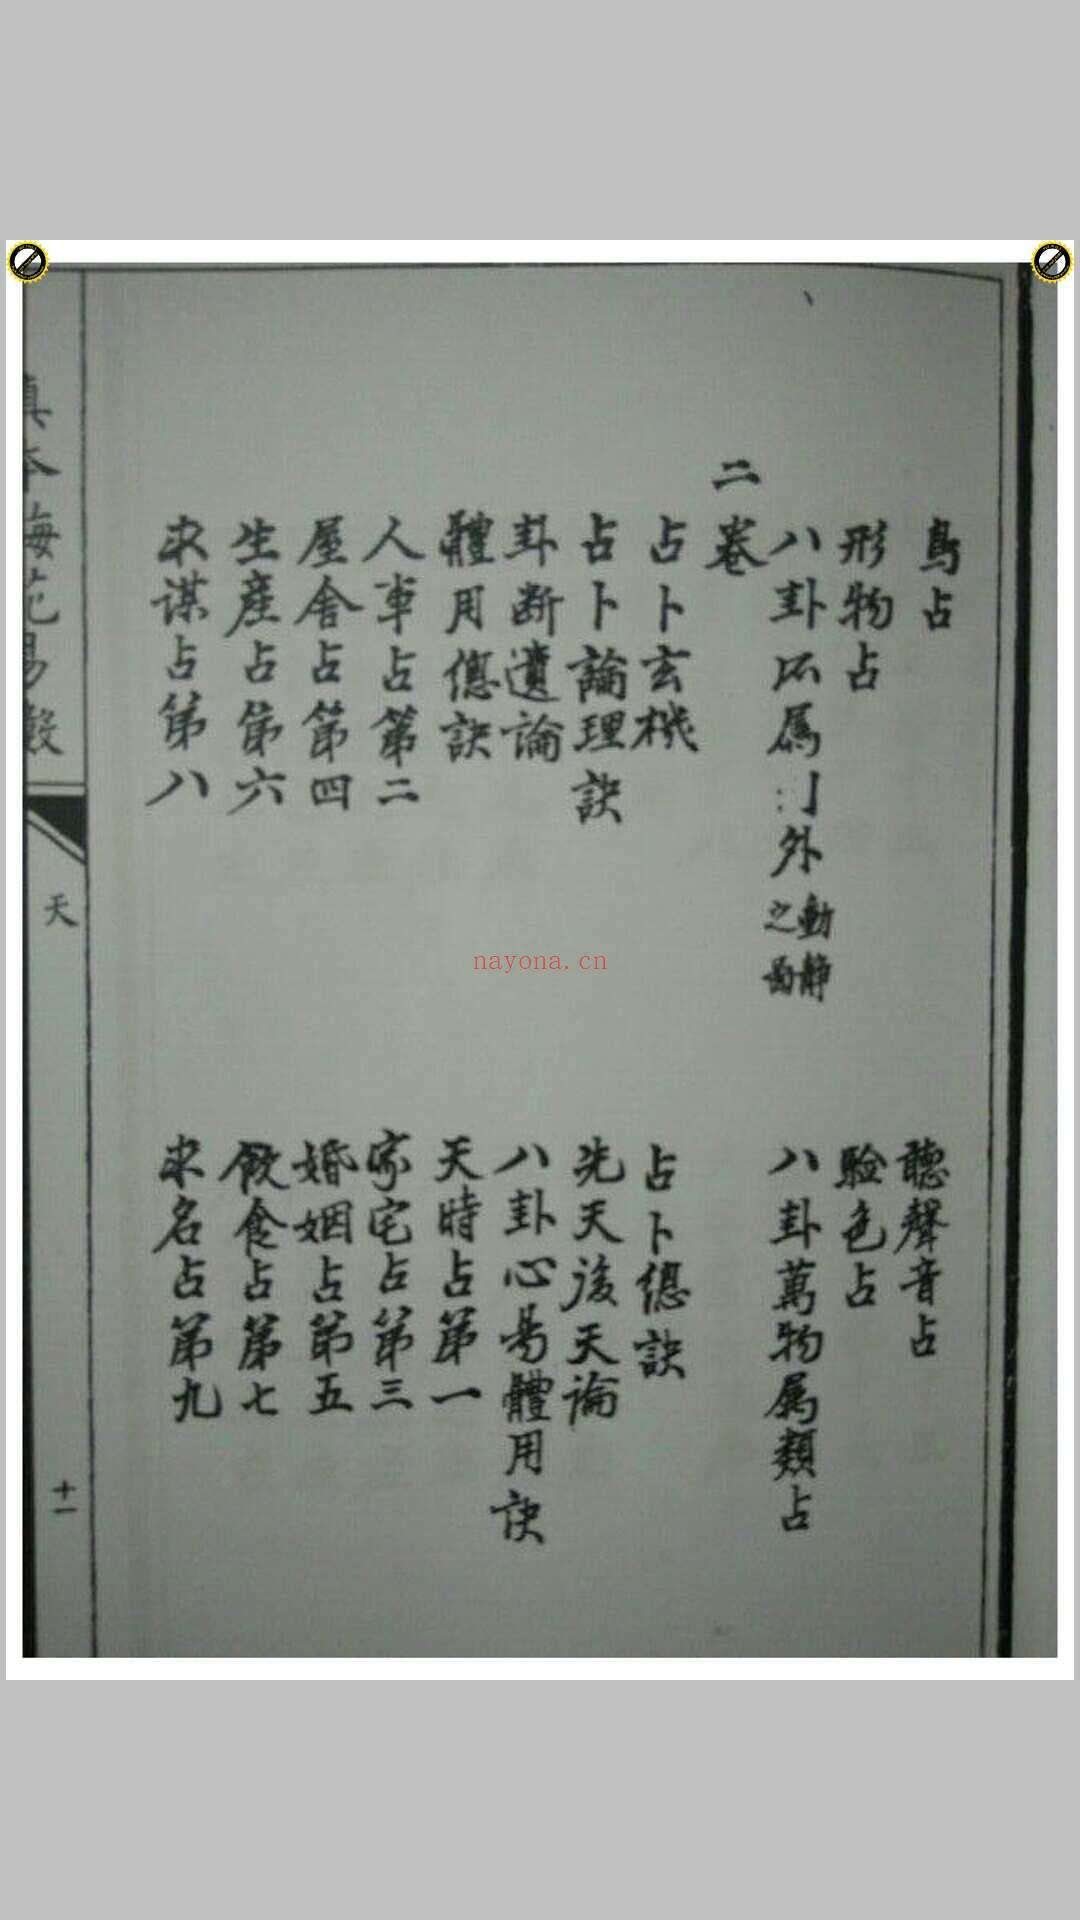 鳥占
聽聲音占
形物占
驗色占
八卦所属 外動靜之圖
八卦萬物属類占
二卷
占卜玄機
占卜總訣
占卜論理訣
先天後天論
卦断遺論
八卦心易體用訣
體用總訣
天時占第一
人事占第二
家宅占第三
屋舍占第四
婚姻占第五
生產占第六
飲食占第七
求謀占第八
求名占第九
真本梅花易數
天
十一
nayona.cn